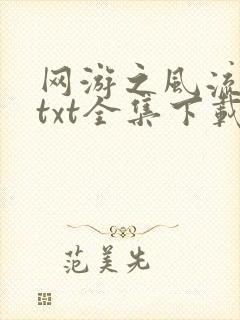 网游之风流
txt全集下载
范美先